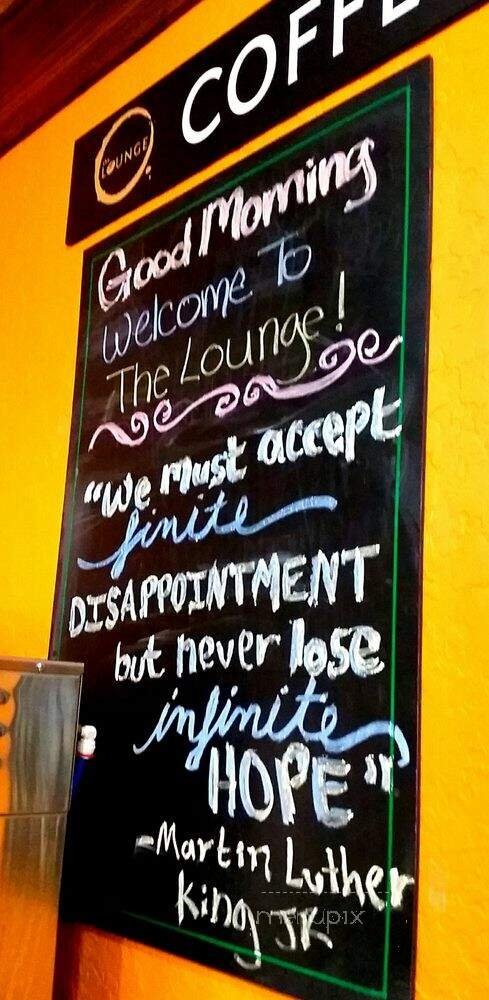 COFFE
THE LOUNGE
Good Morning
Welcome To
The Lounge!
"We must accept
finite
DISAPPOINTMENT
but never lose
infinite
HOPE"
-Martin Luther
King JR
menupix